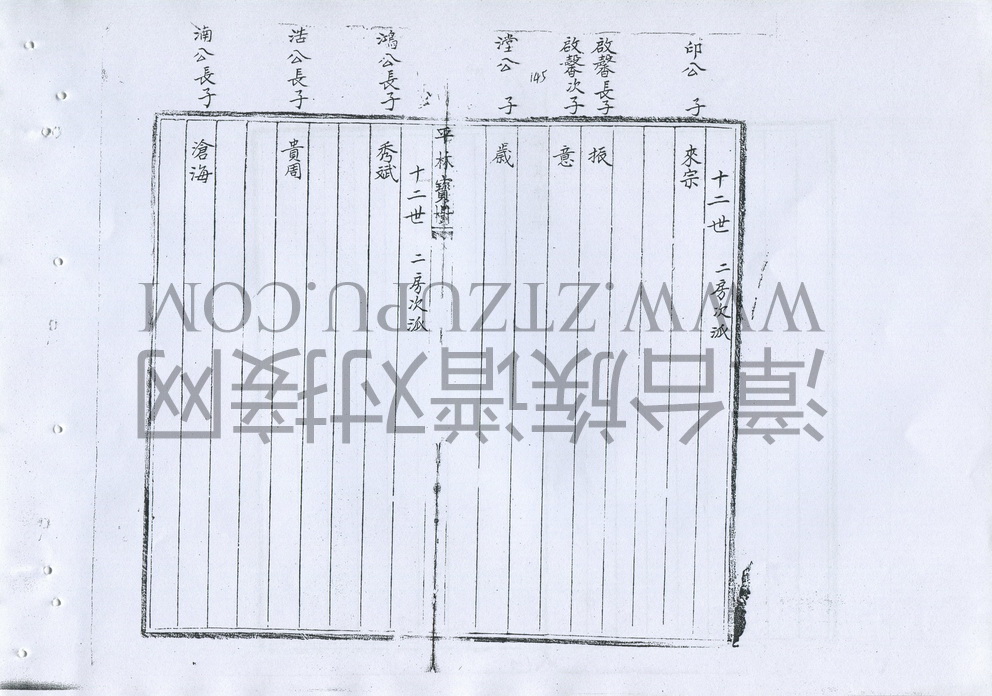 印公 子
啟馨長子
啟馨次子
145
漟公 子
鴻公長子
浩公長子
湳公長子
十二世 二房次派
來宗
振
意
歲
平林寶樹
十二世 二房次派
秀斌
貴周
滄海
WWW.ZTZUPU.COM
漳台族谱对接网